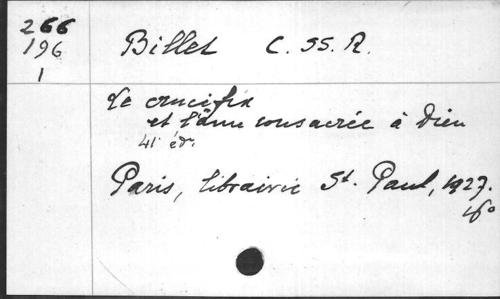 266
196
1
Billet C. SS. R.
Le crucifix
et l'âme consacrée à Dieu
41 éd.
Paris, librairie St. Paul, 1927.
16°